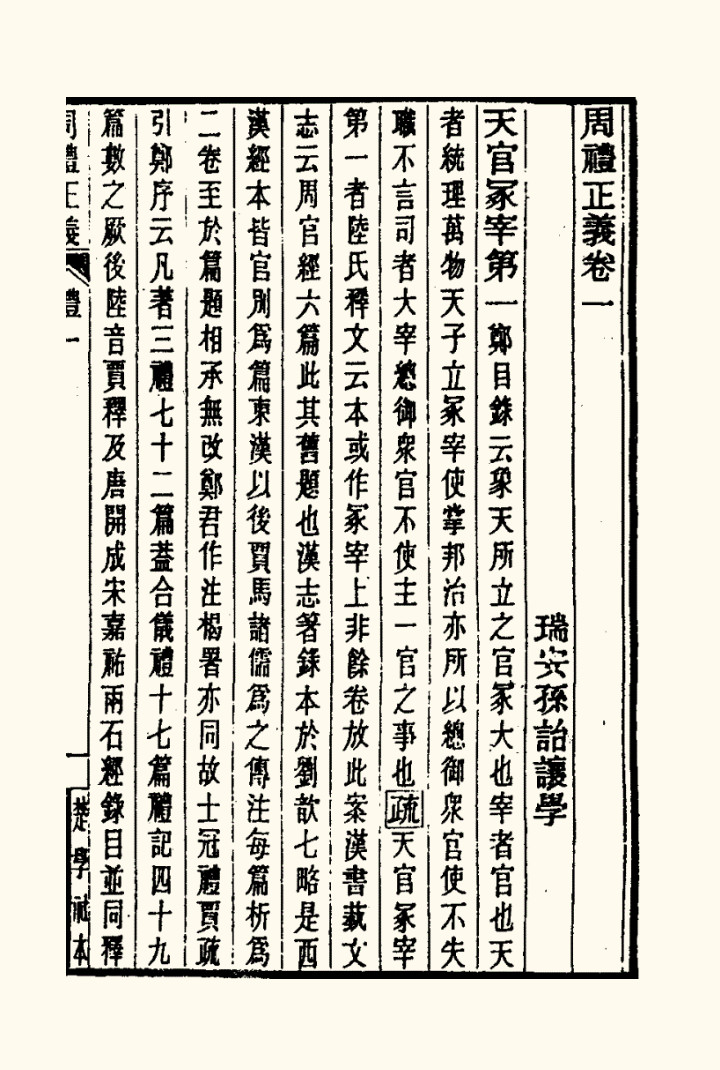 周禮正義卷一
瑞安孫詒讓學
天官冢宰第一鄭目錄云象天所立之官冢大也宰者官也天
者統理萬物天子立冢宰使掌邦治亦所以總御眾官使不失
職不言司者大宰總御眾官不使主一官之事也疏天官冢宰
第一者陸氏釋文云本或作冢宰上非餘卷放此案漢書蓺文
志云周官經六篇此其舊題也漢志箸錄本於劉歆七略是西
漢經本皆官別爲篇東漢以後賈馬諸儒爲之傳注每篇析爲
二卷至於篇題相承無改鄭君作注楬署亦同故士冠禮賈疏
引鄭序云凡著三禮七十二篇葢合儀禮十七篇禮記四十九
篇數之厥後陸音賈釋及唐開成宋嘉祐兩石經錄目並同釋
周禮正義
禮一
一
楚學社本